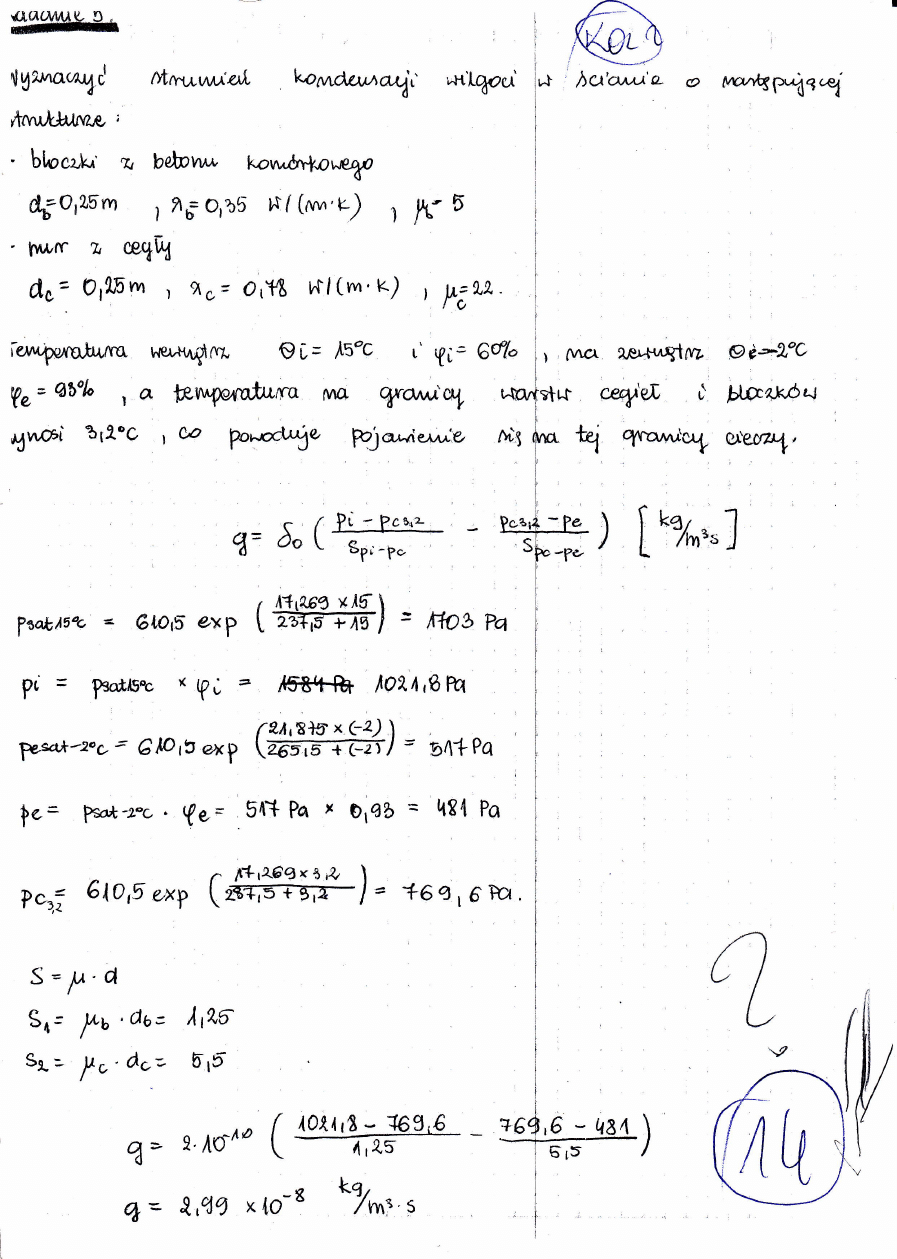 zadanie 9.
KOL 2
Wyznaczyć strumień kondensacji wilgoci w ścianie o następującej
strukturze:
· bloczki z betonu komórkowego
d_b=0,25m , λ_b=0,35 W/(m·K) , μ_b= 5
· mur z cegły
d_c = 0,25m , λ_c = 0,78 W/(m·K) , μ_c=22.
Temperatura wewnątrz Θi= 15°C i φi= 60% , na zewnątrz Θe=-2°C
φe = 93% , a temperatura na granicy warstw cegieł i bloczków
wynosi 3,2°C , co powoduje pojawienie się na tej granicy cieczy.
g= δ₀ ( (pi - pc3,2)/(S pi-pc) - (pc3,2 - pe)/(S pc-pe) ) [kg/m³s]
psat15°C = 610,5 exp ( (17,269 × 15)/(237,5 + 15) ) = 1703 Pa
pi = psat15°C × φi = 1584 Pa 1021,8 Pa
pesat-2°C = 610,5 exp ( (21,875 × (-2))/(265,5 + (-2)) ) = 517 Pa
pe = psat-2°C · φe = 517 Pa × 0,93 = 481 Pa
pc3,2 = 610,5 exp ( (17,269 × 3,2)/(237,5 + 3,2) ) = 769,6 Pa.
S = μ · d
S₁ = μb · db = 1,25
S₂ = μc · dc = 5,5
g = 2·10⁻¹⁰ ( (1021,8 - 769,6)/1,25 - (769,6 - 481)/5,5 )
g = 2,99 × 10⁻⁸ kg/m³·s
?
14